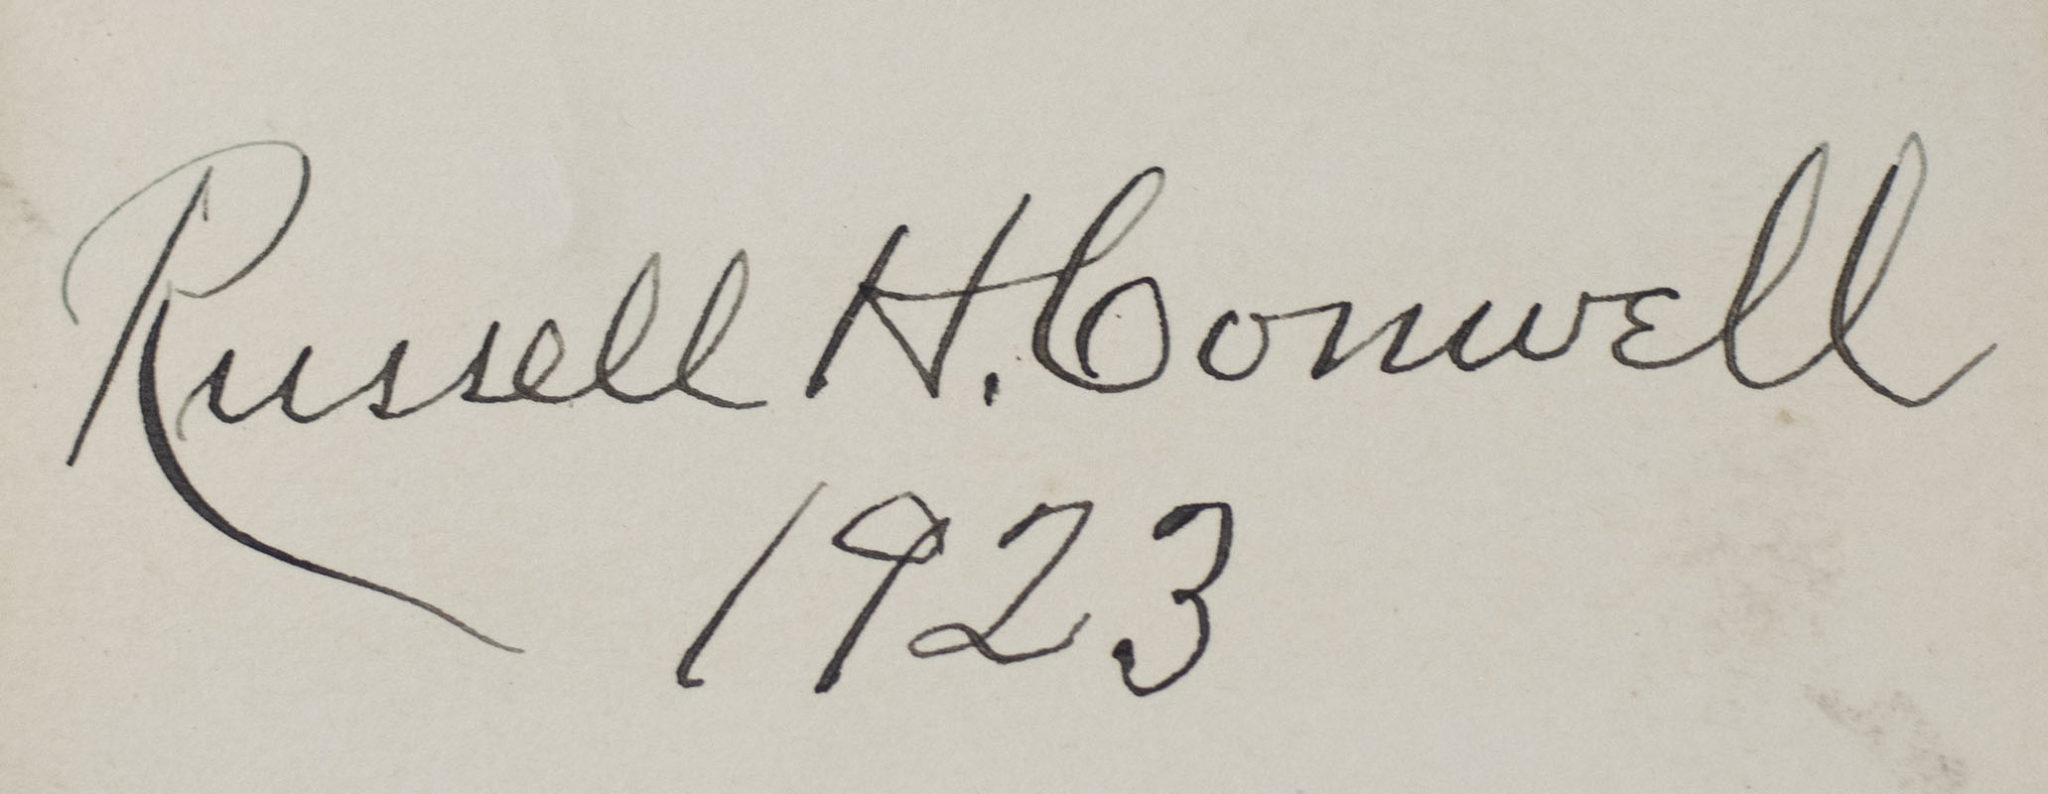 Russell H. Conwell
1923